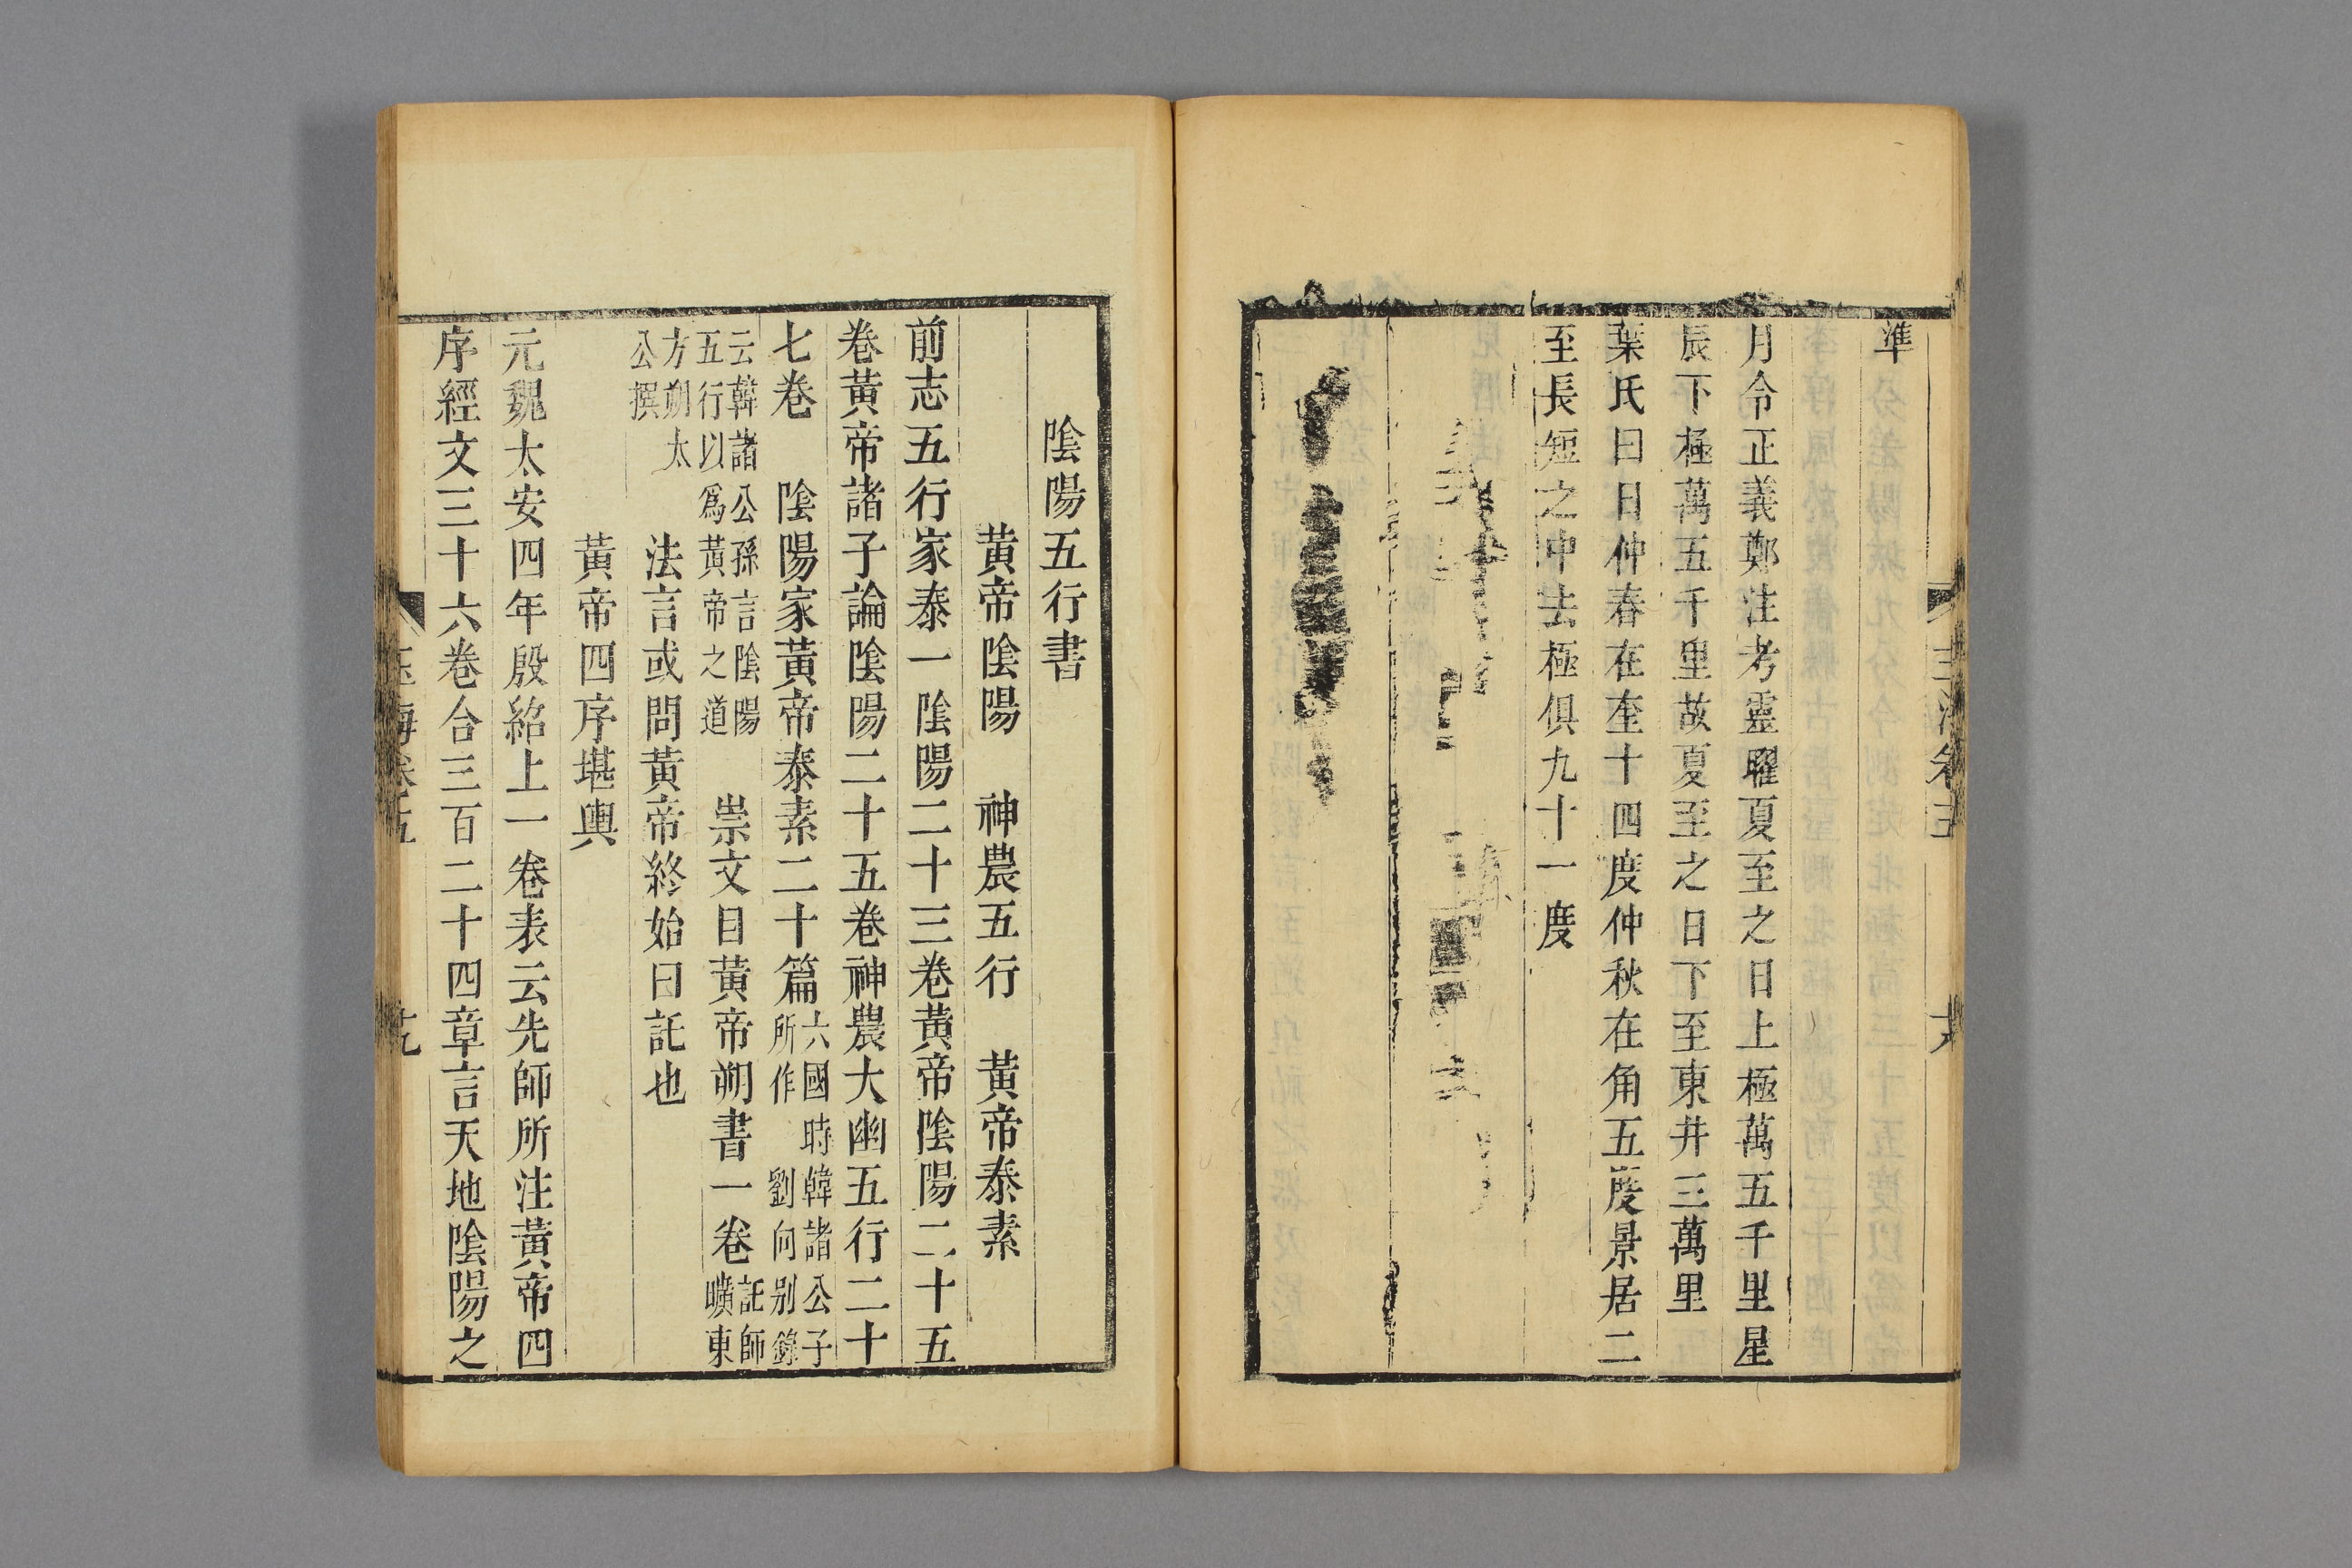 準
月令正義鄭注考靈曜夏至之日上極萬五千里星
辰下極萬五千里故夏至之日下至東井三萬里
葉氏曰日仲春在奎十四度仲秋在角五度景居二
至長短之中去極俱九十一度
陰陽五行書
黃帝陰陽　神農五行　黃帝泰素
前志五行家泰一陰陽二十三卷黃帝陰陽二十五
卷黃帝諸子論陰陽二十五卷神農大幽五行二十
七卷　陰陽家黃帝泰素二十篇六國時韓諸公子
所作　劉向別錄
云韓諸公孫言陰陽
五行以爲黃帝之道　崇文目黃帝朔書一卷託師
曠東
方朔太
公撰　法言或問黃帝終始曰託也
黃帝四序堪輿
元魏太安四年殷紹上一卷表云先師所注黃帝四
序經文三十六卷合三百二十四章言天地陰陽之